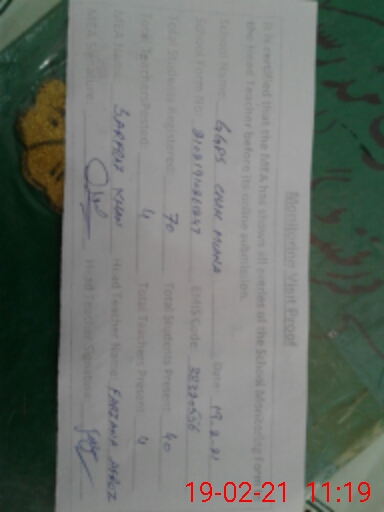 Monitoring Visit Proof
It is certified that the MEA has shown all entries of the School Monitoring Form to
the Head Teacher before its online submission.
School Name: GGPS Date: 19-2-21
School Form No: EMIS Code:
Total Students Registered: 70 Total Students Present: 40
Total Teachers Posted: 4 Total Teachers Present: 4
MEA Name: SARFRAZ KHAN Head Teacher Name: FARZANA AFROZ
MEA Signature: Head Teacher Signature:
19-02-21 11:19